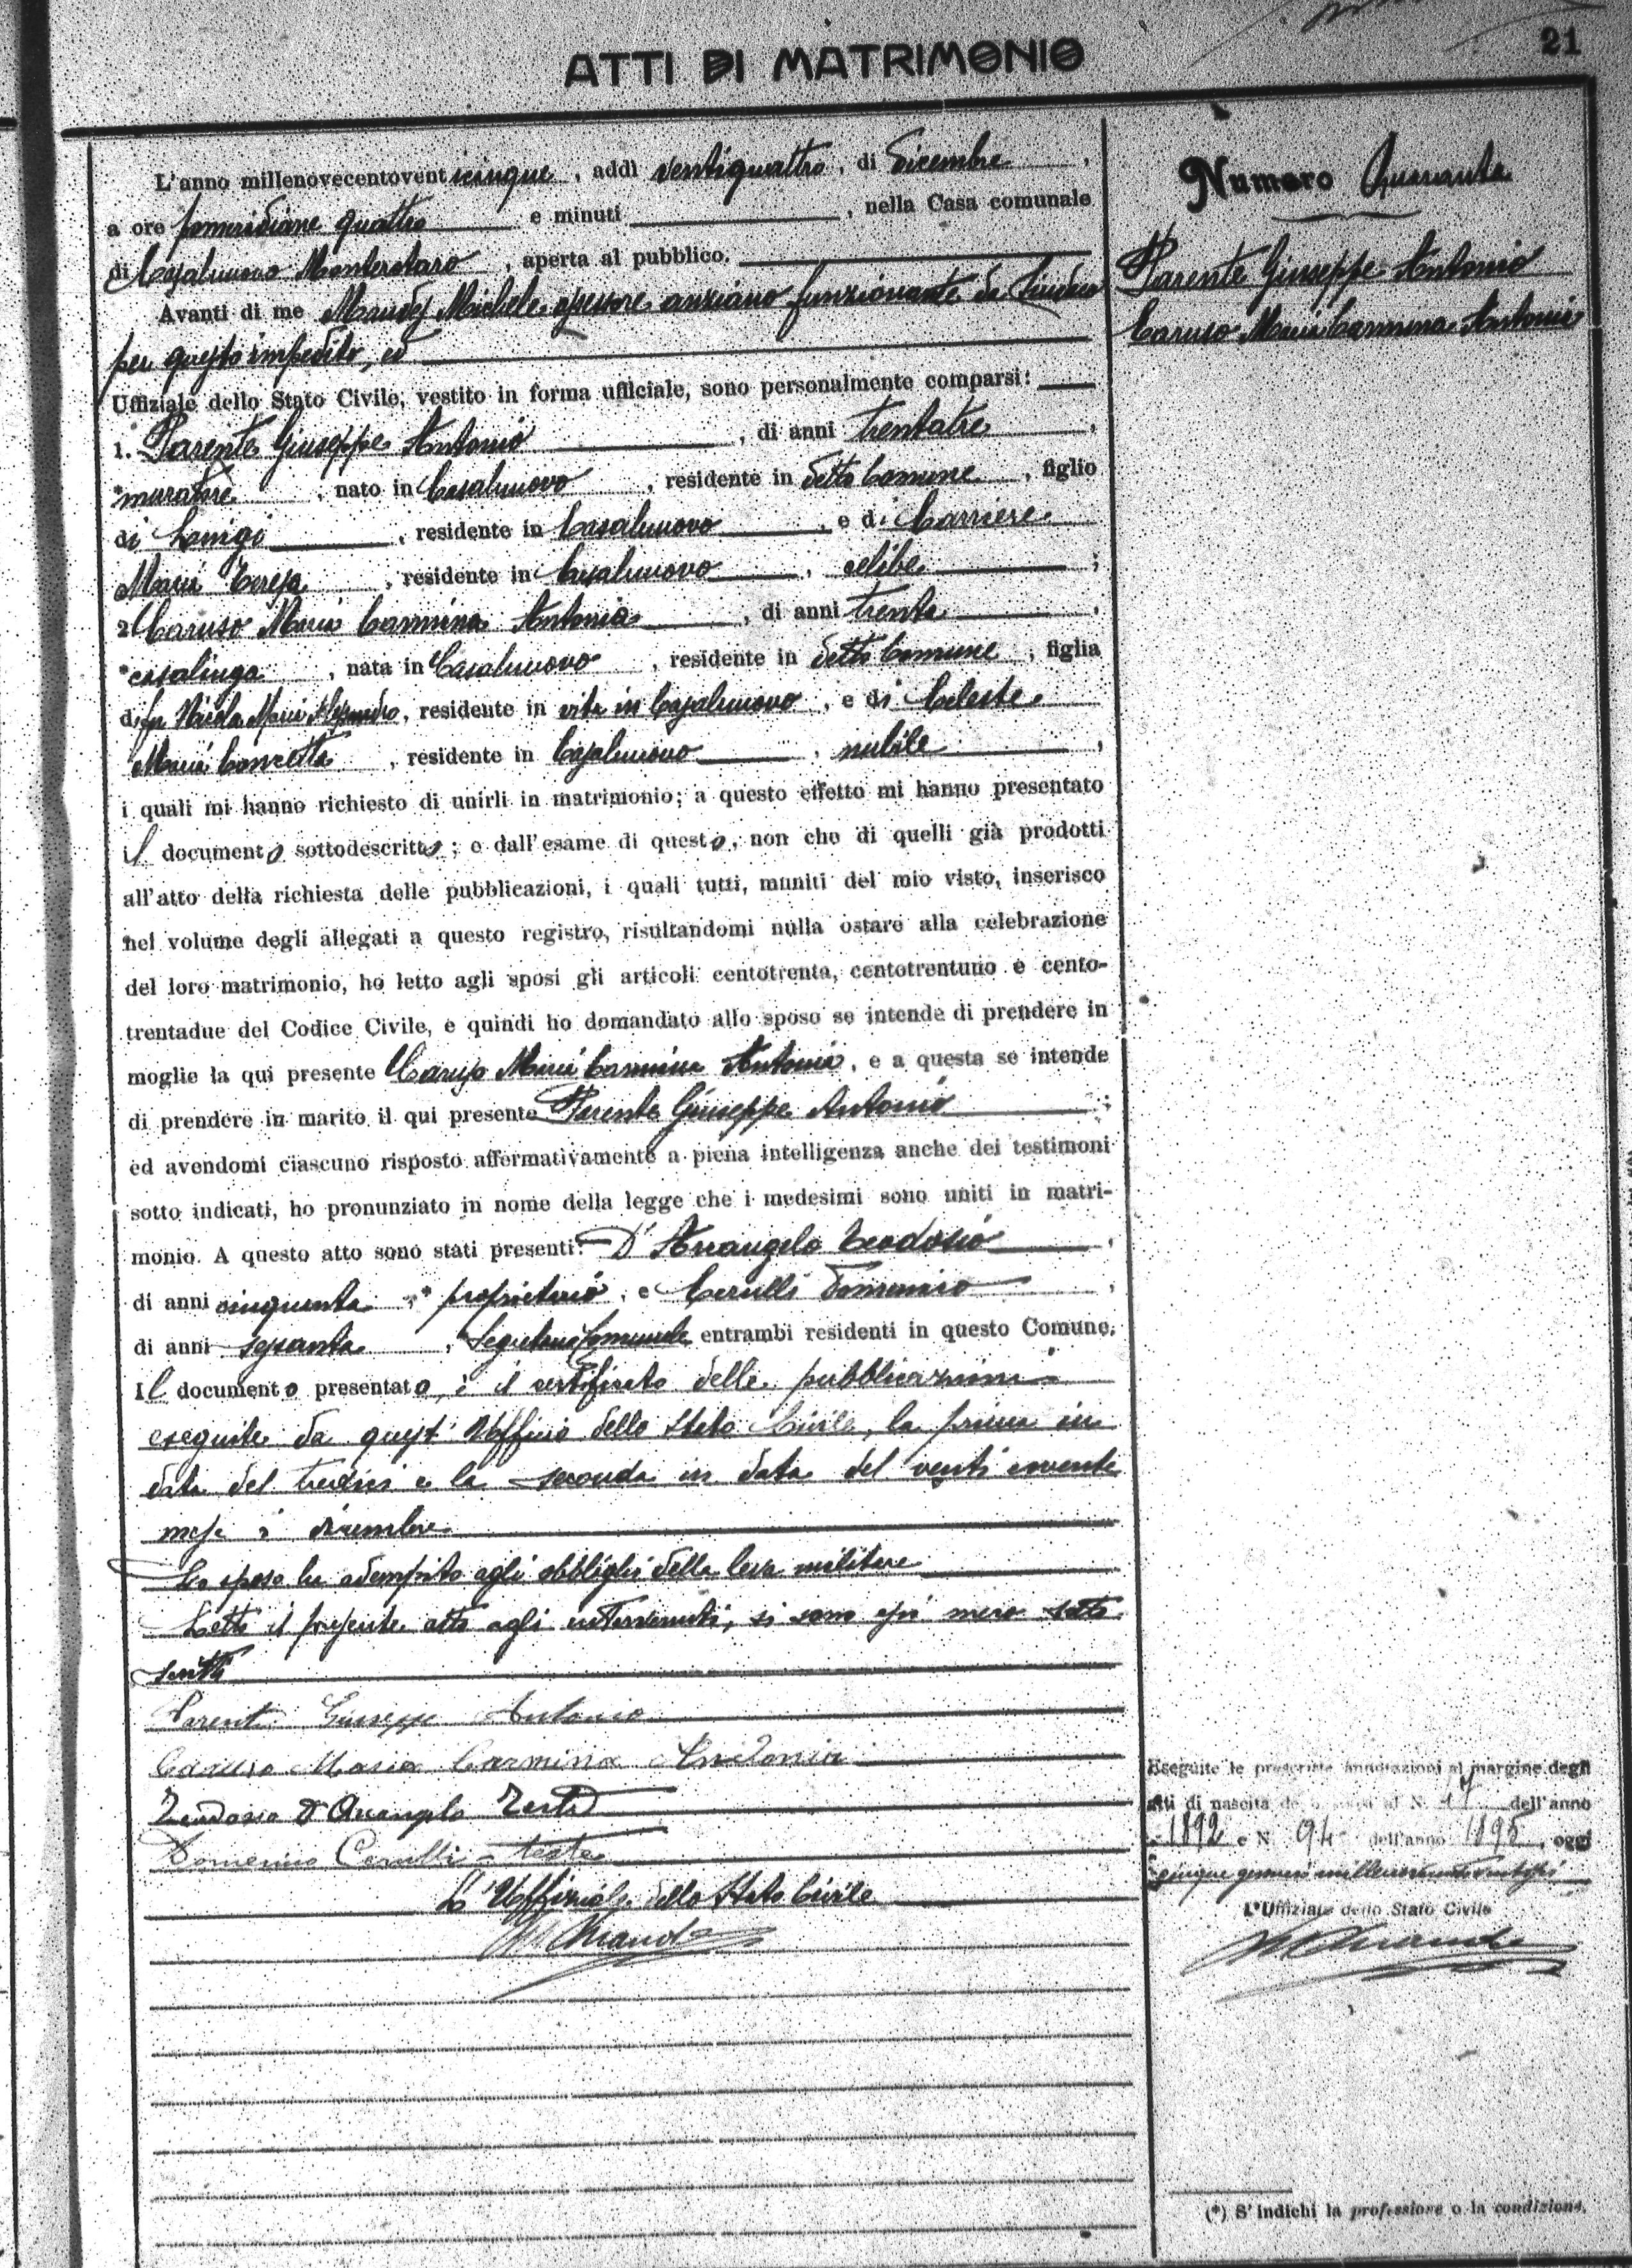 21
ATTI DI MATRIMONIO
Numero Quaranta
Parente Giuseppe Antonio
Caruso Maria Carmina Antonia
L'anno millenovecentoventicinque, addì ventiquattro, di Dicembre,
a ore pomeridiane quattro e minuti, nella Casa comunale
di Casalnuovo Monterotaro, aperta al pubblico.
Avanti di me Michele assessore anziano funzionante da Sindaco
per questo impedito, ed
Uffiziale dello Stato Civile, vestito in forma ufficiale, sono personalmente comparsi:
1. Parente Giuseppe Antonio, di anni trentatre,
*muratore, nato in Casalnuovo, residente in detto Comune, figlio
di Luigi, residente in Casalnuovo, e di Carriere
Maria Teresa, residente in Casalnuovo, celibe;
2 Caruso Maria Carmina Antonia, di anni trenta,
*casalinga, nata in Casalnuovo, residente in detto Comune, figlia
di fu Nicola Maria Alessandro, residente in vita in Casalnuovo, e di Celeste
Maria Concetta, residente in Casalnuovo, nubile,
i quali mi hanno richiesto di unirli in matrimonio; a questo effetto mi hanno presentato
il documento sottodescritto; e dall'esame di questo, non che di quelli già prodotti
all'atto della richiesta delle pubblicazioni, i quali tutti, muniti del mio visto, inserisco
nel volume degli allegati a questo registro, risultandomi nulla ostare alla celebrazione
del loro matrimonio, ho letto agli sposi gli articoli centotrenta, centotrentuno e cento-
trentadue del Codice Civile, e quindi ho domandato allo sposo se intende di prendere in
moglie la qui presente Caruso Maria Carmina Antonia, e a questa se intende
di prendere in marito il qui presente Parente Giuseppe Antonio;
ed avendomi ciascuno risposto affermativamente a piena intelligenza anche dei testimoni
sotto indicati, ho pronunziato in nome della legge che i medesimi sono uniti in matri-
monio. A questo atto sono stati presenti: D'Arcangelo Teodosio,
di anni cinquanta, *proprietario, e Cerulli Domenico,
di anni sessanta, *Segretario Comunale entrambi residenti in questo Comune.
Il documento presentato, è il certificato delle pubblicazioni
eseguite da quest'Ufficio dello Stato Civile, la prima in
data del tredici e la seconda in data del venti corrente
mese di dicembre.
Lo sposo ha adempito agli obblighi della leva militare
Letto il presente atto agli intervenuti, si sono essi meco sotto
scritti
Parente Giuseppe Antonio
Caruso Maria Carmina Antonia
Teodosio D'Arcangelo Teste
Domenico Cerulli = teste
L'Uffiziale dello Stato Civile
Eseguite le prescritte annotazioni al margine degli
atti di nascita degli sposi al N. 17 dell'anno
1892 e N. 94 dell'anno 1895, oggi
cinque gennaio millenovecentoventisei
L'Uffiziale dello Stato Civile
(*) S'indichi la professione o la condizione.